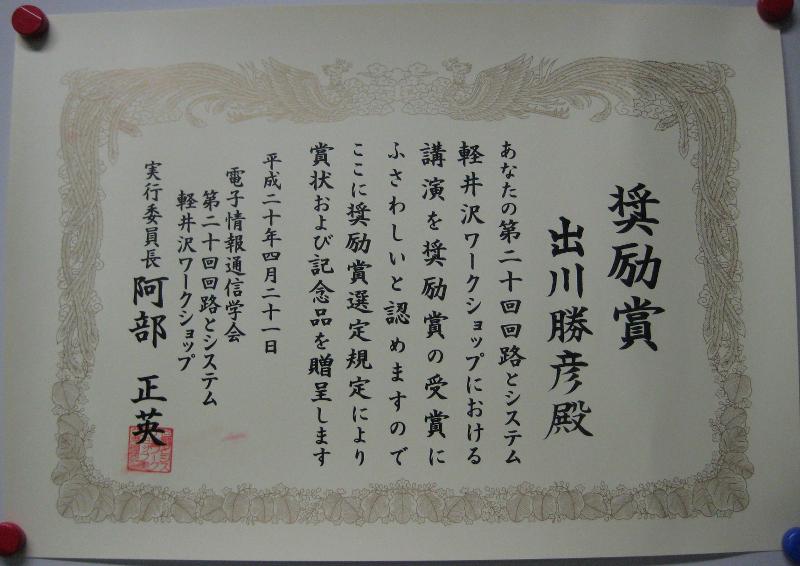 奨励賞
出川勝彦殿
あなたの第二十回回路とシステム
軽井沢ワークショップにおける
講演を奨励賞の受賞に
ふさわしいと認めますので
ここに奨励賞選定規定により
賞状および記念品を贈呈します
平成二十年四月二十一日
電子情報通信学会
第二十回回路とシステム
軽井沢ワークショップ
実行委員長 阿部 正英